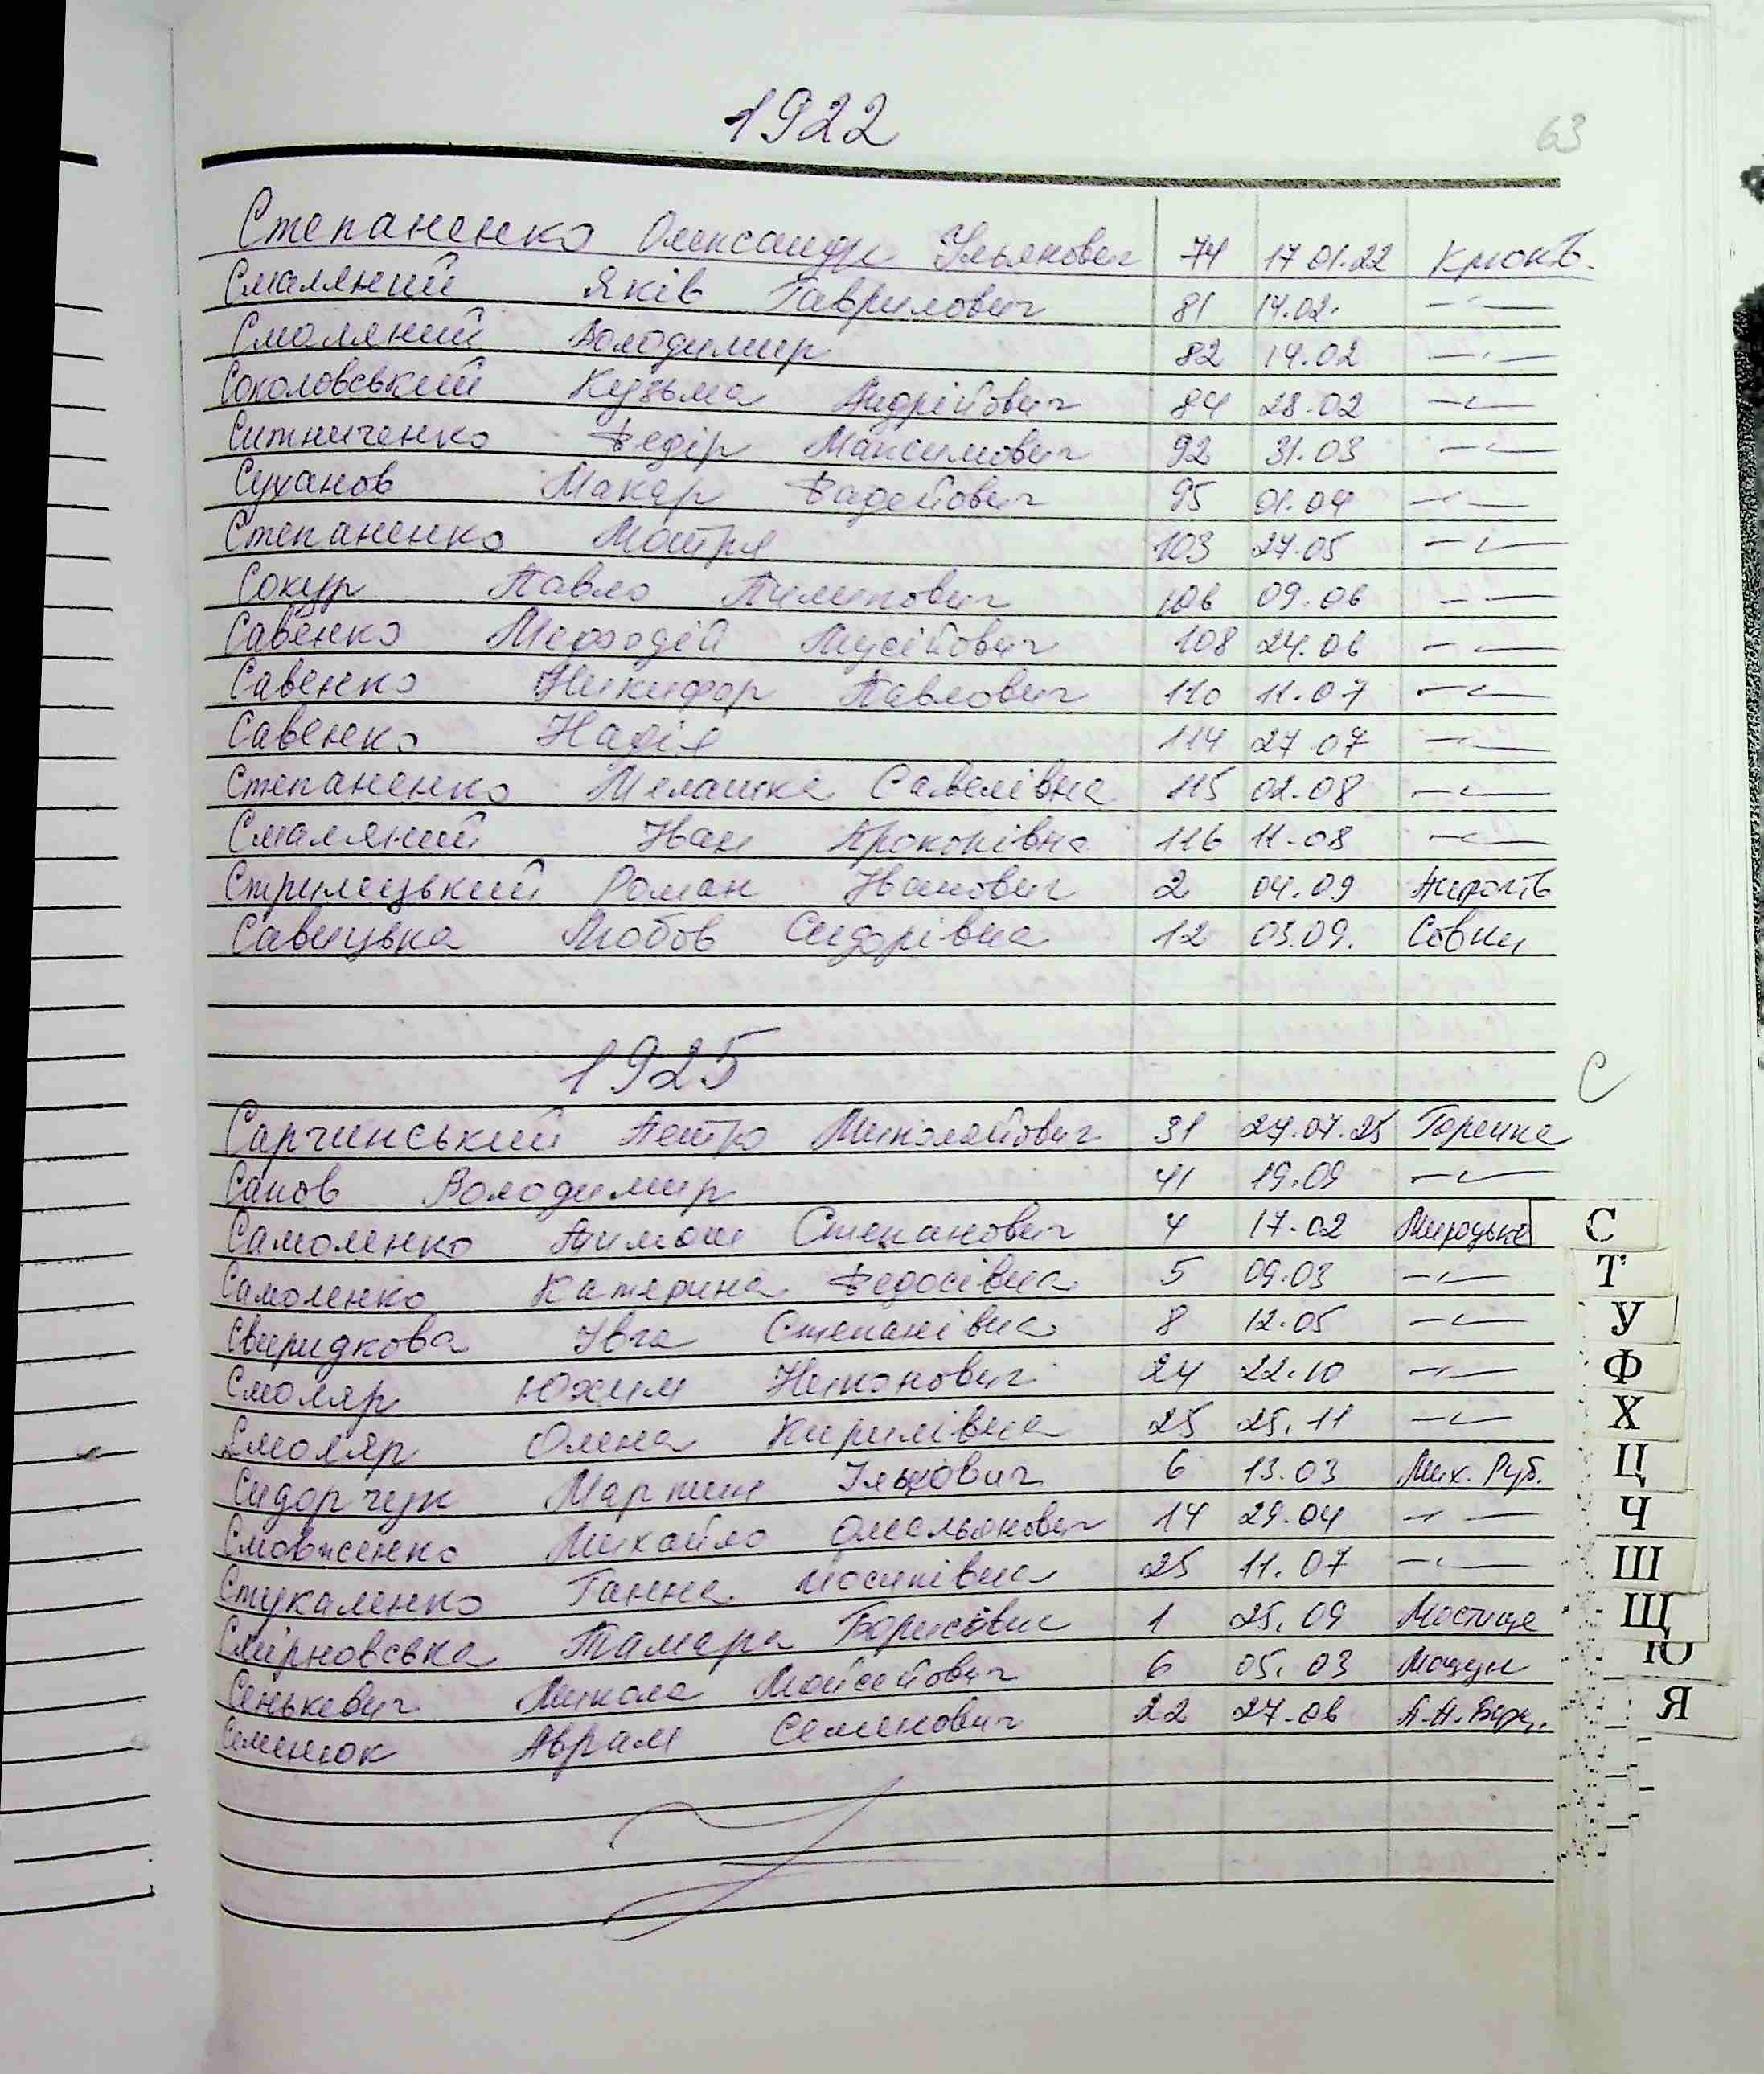 1922
63
Степаненко Олександр Ульянович 74 17.01.22 Крюків.
Смаляний Яків Гаврилович 81 14.02. —"—
Смоляний Володимир 82 14.02 —"—
Соколовський Кузьма Андрійович 84 28.02 —"—
Ситниченко Федір Максимович 92 31.03 —"—
Суханов Макар Фадейович 95 01.04 —"—
Степаненко Мотря 103 27.05 —"—
Сокур Павло Пилипович 106 09.06 —"—
Савенко Мефодій Мусійович 108 24.06 —"—
Савенко Никифор Павлович 110 11.07 —"—
Савенко Надія 114 27.07 —"—
Степаненко Мелашка Савелівна 115 02.08 —"—
Смаляний Іван Прокопівна 116 11.08 —"—
Стрилецький Роман Іванович 2 04.09
Савицька Любов Сидорівна 12 03.09. Совки
1925
С
Сарчинський Петро Миколайович 31 27.07.25 Горенка
Сапов Володимир 41 19.09 —"—
Самоленко Тимош Степанович 4 17.02 Мироцьке
Самоленко Катерина Федосівна 5 09.03 —"—
Свиридкова Івга Степанівна 8 12.05 —"—
Смоляр Юхим Никонович 24 22.10 —"—
Смоляр Олена Кирилівна 25 25.11 —"—
Сидорчук Мартин Ількович 6 13.03 Мих. Руб.
Смовженко Михайло Омельянович 14 29.04 —"—
Стукаленко Ганна Йосипівна 25 11.07 —"—
Смірновська Тамара Борисівна 1 25.09 Мостище
Сенькевич Микола Мойсейович 6 05.03 Мощун
Семенюк Аврам Семенович 22 27.06
С
Т
У
Ф
Х
Ц
Ч
Ш
Щ
Ю
Я